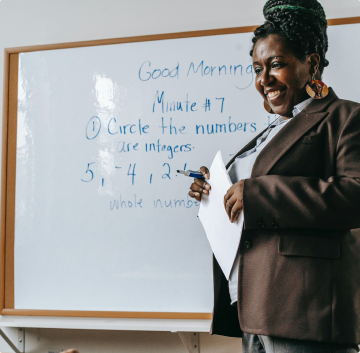 Good Morning
Minute #7
① Circle the numbers
are integers.
5, -4, 2
whole